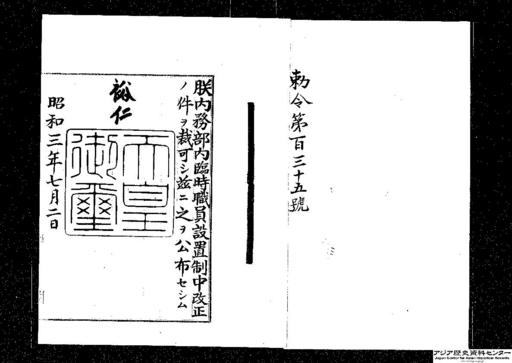 勅令第百三十五號
朕内務部内臨時職員設置制中改正
ノ件ヲ裁可シ茲ニ之ヲ公布セシム
裕仁
天皇御璽
昭和三年七月二日
アジア歴史資料センター
Japan Center for Asian Historical Records